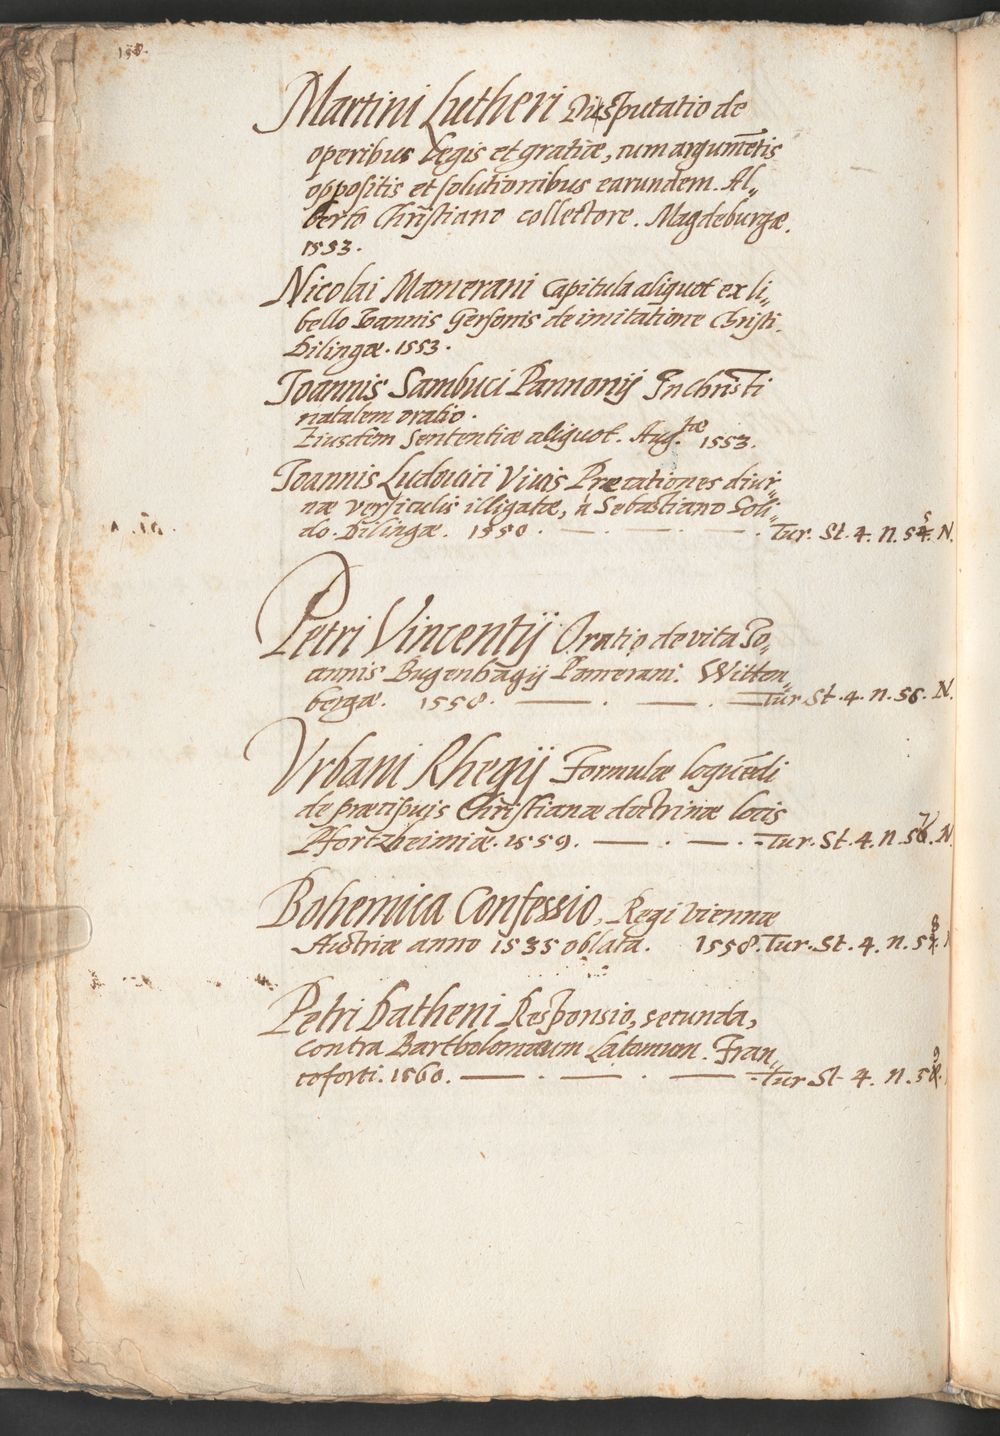 198.
Martini Lutheri Disputatio de
operibus legis et gratiæ, cum argumẽtis
oppositis et solutionibus earundem. Al„
berto Christiano collectore. Magdeburgæ.
1553.
Nicolai Mamerani Capitula aliquot ex li„
bello Ioannis Gersonis de imitatione Christi.
Dilingæ. 1553.
Ioannis Sambuci Pannonij In Christi
natalem oratio.
Eiusdem Sententiæ aliquot. Aug.tæ 1553.
Ioannis Ludovici Vivis Precationes diur„
næ versiculis illigatæ, à Sebastiano Soli„
do. Dilingæ. 1550. — . — . Tur. St. 4. n. 54. 5 N.
Petri Vincentij Oratio de vita Io„
annis Bugenhagij Pomerani. Witten„
bergæ. 1558. — . — . — Tur. St. 4. n. 56. N.
Vrbani Rhegij Formulæ loquẽdi
de præcipuis Christianæ doctrinæ locis
Pfortzheimiæ. 1559. — . — . Tur. St. 4. n. 56. 7 N.
Bohemica Confessio, Regi Viennæ
Austriæ anno 1535 oblata. 1558. Tur. St. 4. n. 57. 8
Petri Datheni Responsio, secunda,
contra Bartholomæum Latomum. Fran„
coforti. 1560. — . — . — . Tur St 4. n. 58. 9